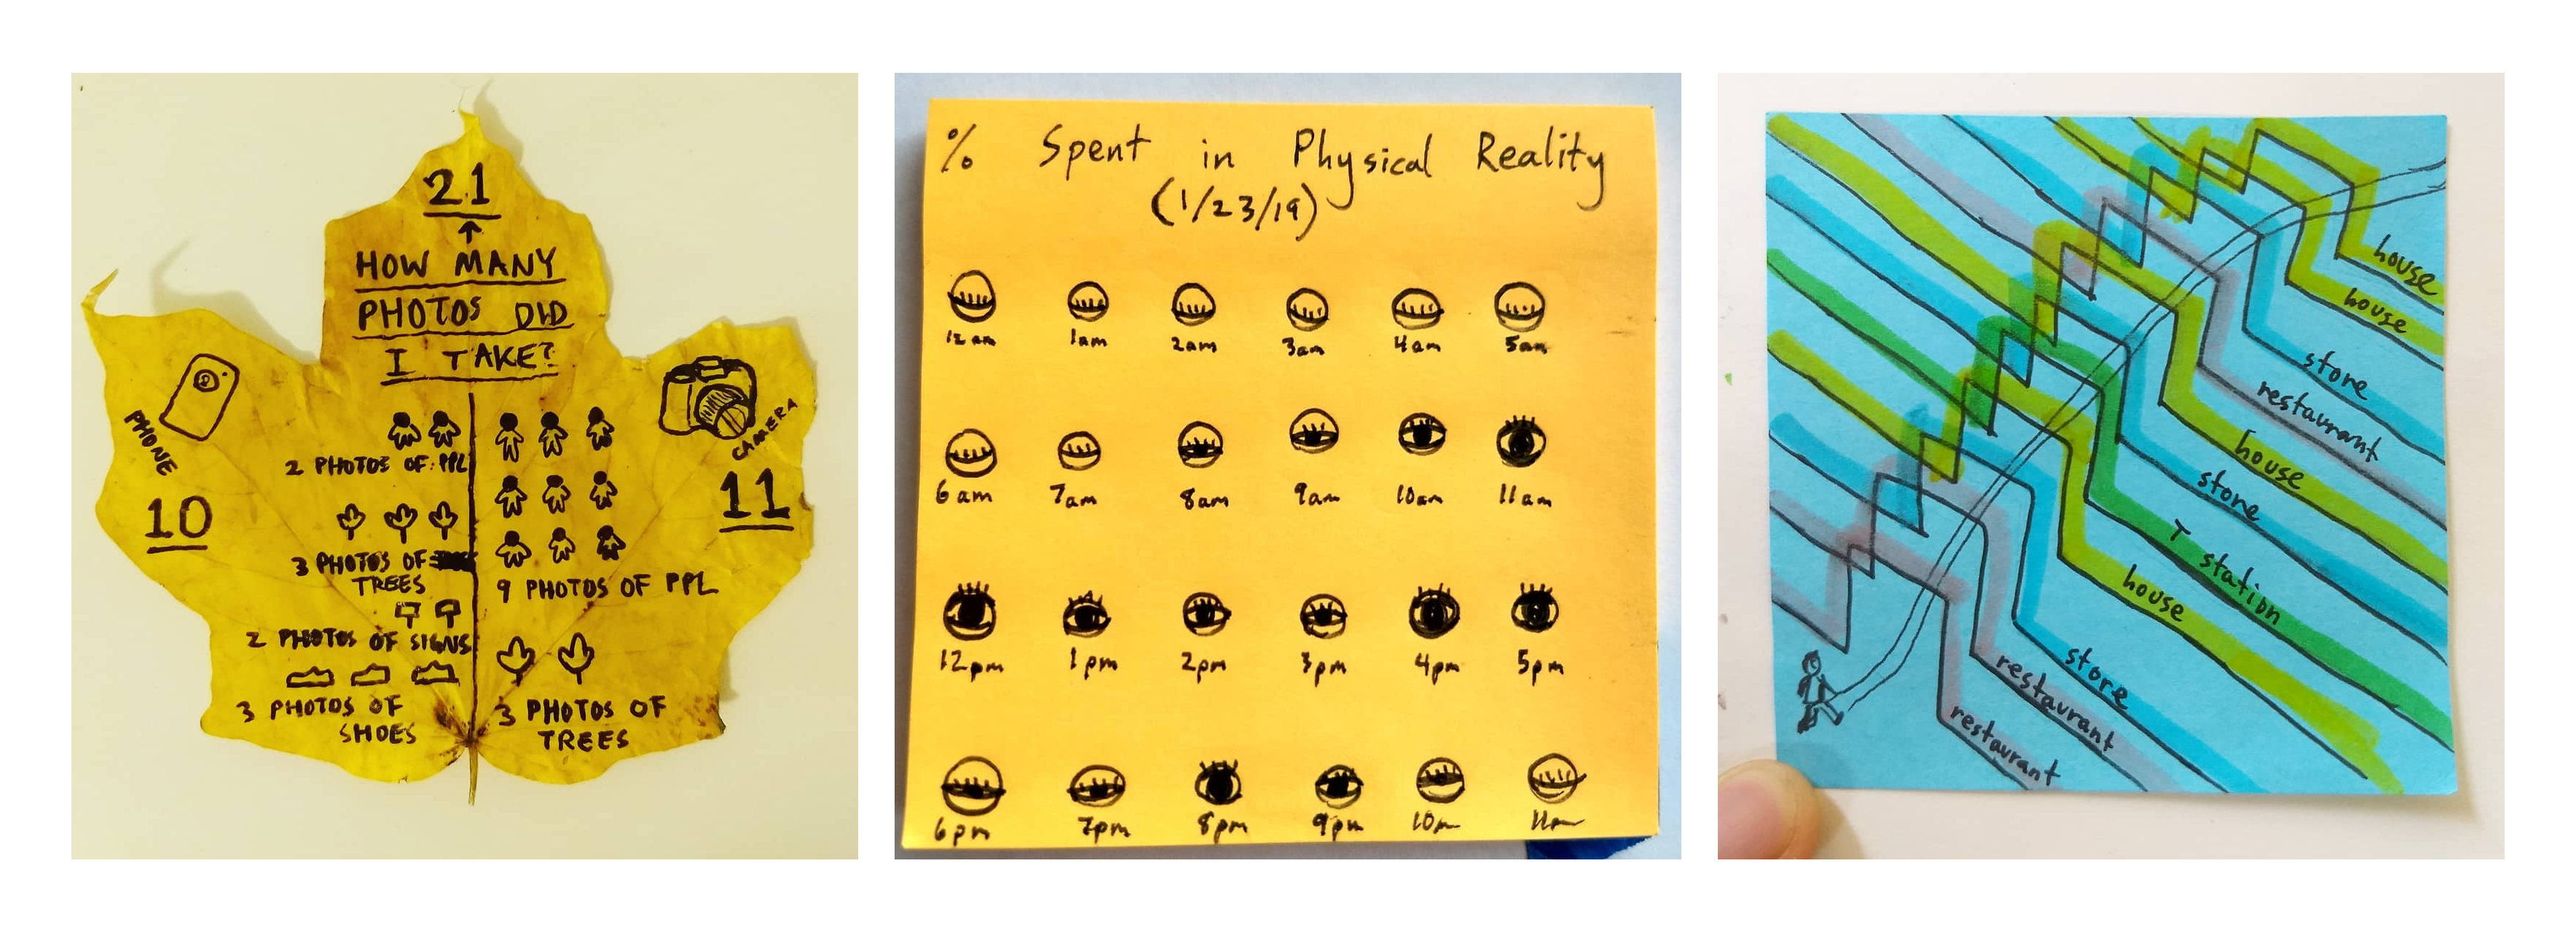 21
HOW MANY
PHOTOS DID
I TAKE?
PHONE
10
2 PHOTOS OF PPL
3 PHOTOS OF
TREES
2 PHOTOS OF SIGNS
3 PHOTOS OF
SHOES
CAMERA
11
9 PHOTOS OF PPL
3 PHOTOS OF
TREES
% Spent in Physical Reality
(1/23/19)
12am 1am 2am 3am 4am 5am
6am 7am 8am 9am 10am 11am
12pm 1pm 2pm 3pm 4pm 5pm
6pm 7pm 8pm 9pm 10pm 11pm
house
house
store
restaurant
house
store
T station
house
store
restaurant
restaurant